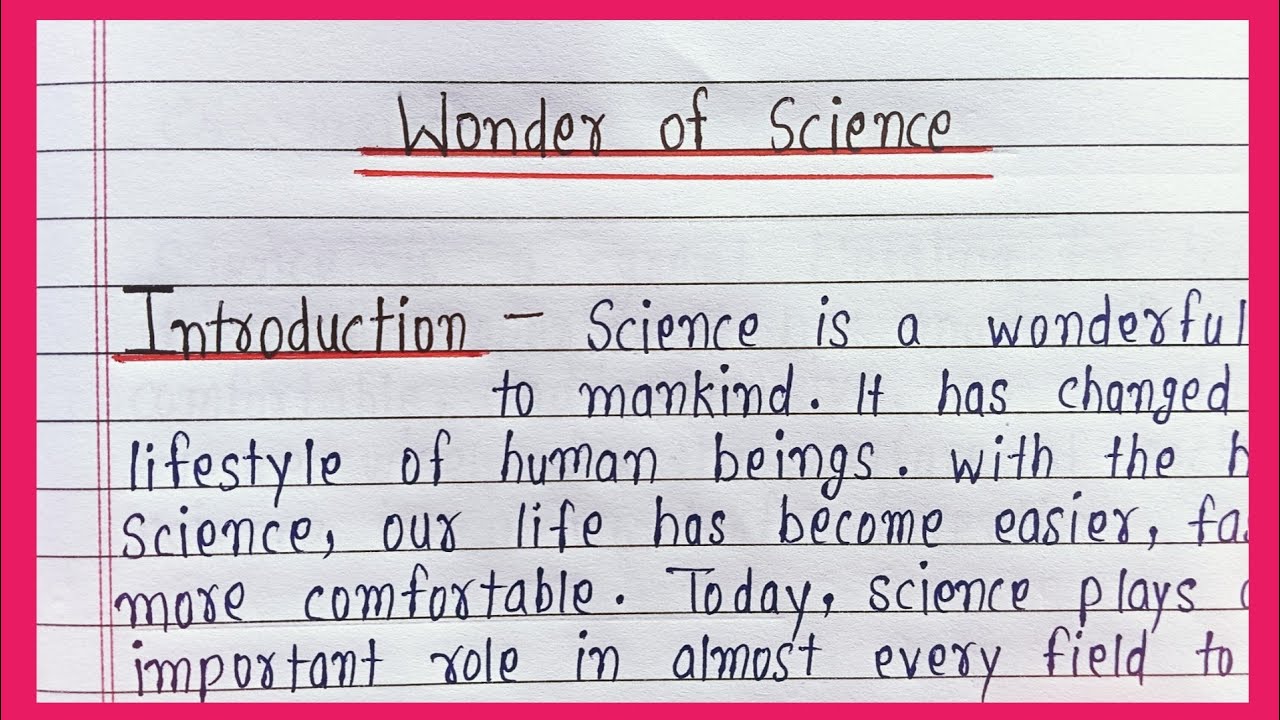 Wonder of Science
Introduction - Science is a wonderful
to mankind. It has changed
lifestyle of human beings. with the
science, our life has become easier,
more comfortable. Today, science plays
important role in almost every field to